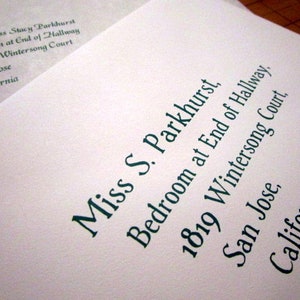 ss Stacy Parkhurst
m at End of Hallway
Wintersong Court
ose
ornia
Miss S. Parkhurst,
Bedroom at End of Hallway,
1819 Wintersong Court,
San Jose,
Califor